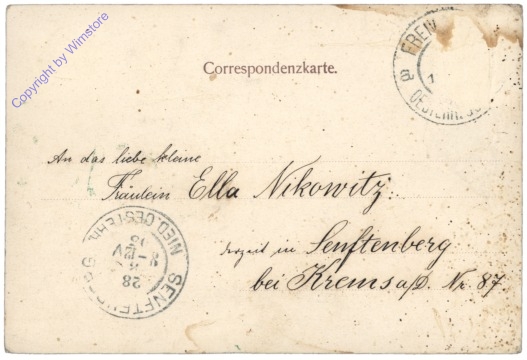 Copyright by Wimstore
Correspondenzkarte.
FREIW
8
1
An das liebe kleine
Fräulein Ella Nikowitz
derzeit in Senftenberg
bei Krems a/D. Nr. 87.
SENFTENBERG
NIED. OESTERR.
28